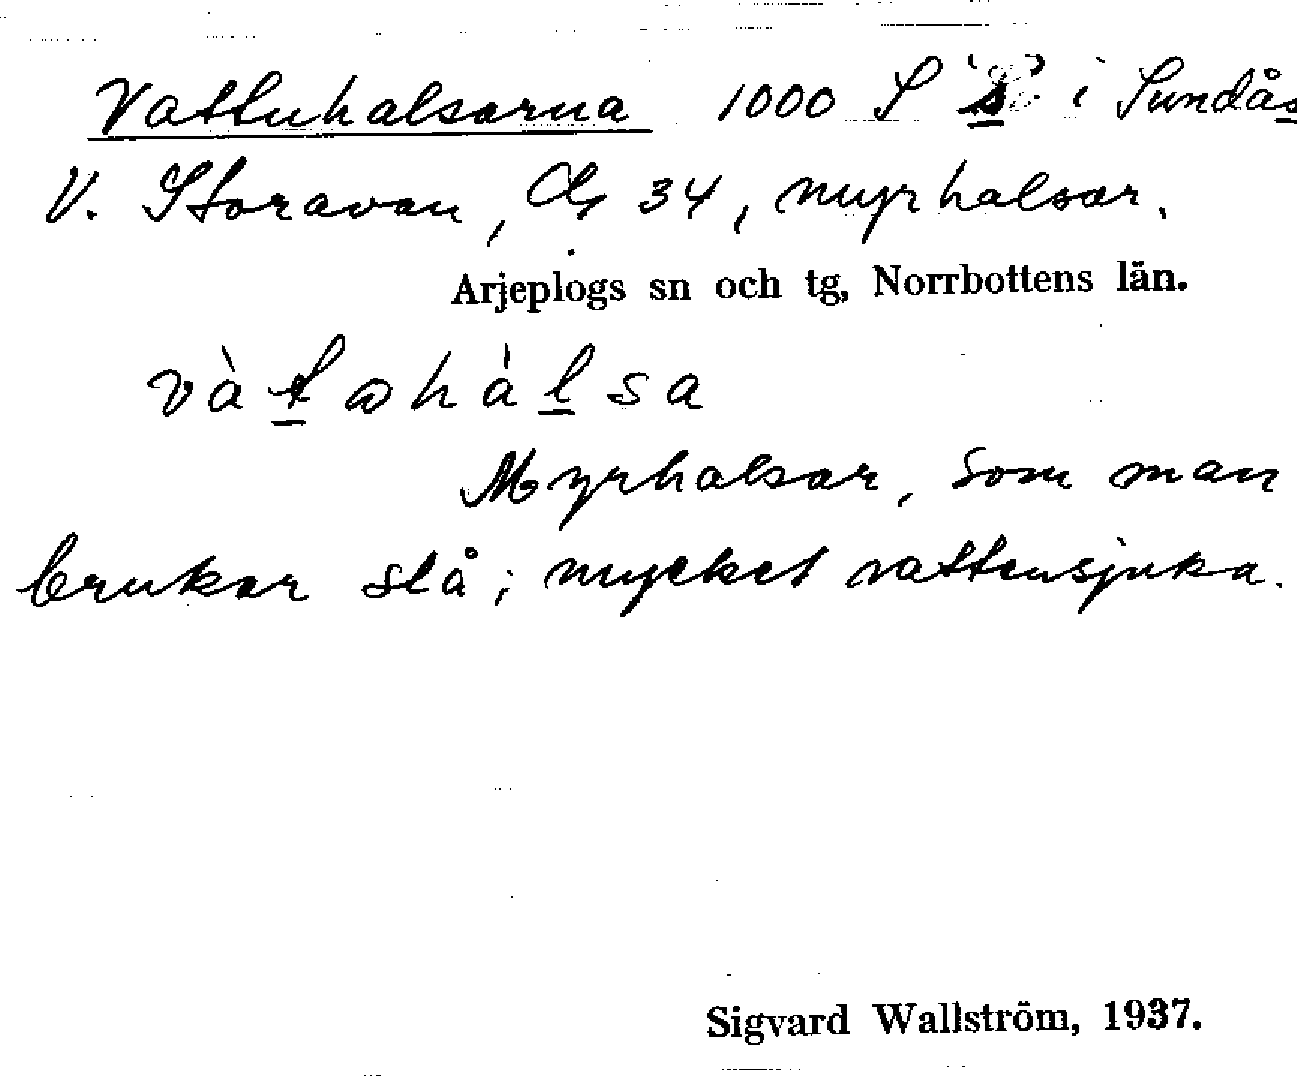 Vattuhalsarna 1000 S s i Sundås
V. Storavan, 34, myrhalsar.
Arjeplogs sn och tg, Norrbottens län.
vàtωhàlsa
Myrhalsar, som man
brukar slå; mycket vattensjuka.
Sigvard Wallström, 1937.